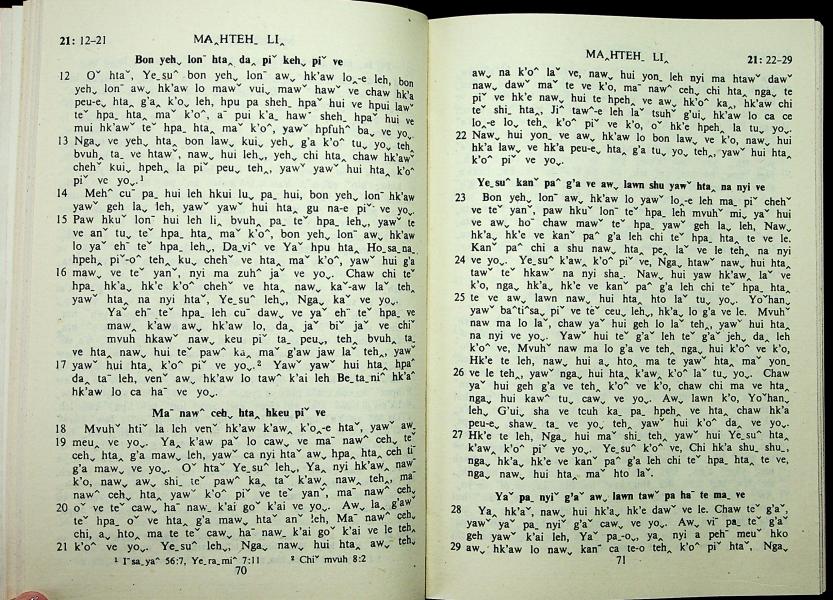 21: 12–21 MAˬHTEHˍ LIˬ
Bon yehˬ lonˉ htaˬ daˍ piˇ kehˬ piˇ ve
12 Oˇ htaˇ, Yeˍsuˆ bon yehˬ lonˉ awˬ hk'aw loˬ-e leh, bon
yehˬ lonˉ awˬ hk'aw lo mawˇ vuiˬ, mawˇ hawˇ ve chaw hk'a
peu-eˬ htaˬ g'aˬ k'oˬ leh, hpu pa shehˍ hpaˇ hui ve hpui lawˇ
teˇ hpaˍ htaˍ maˇ k'oˆ, aˉ pui k'aˍ hawˉ shehˍ hpaˇ hui ve
mui hk'awˇ teˇ hpaˍ htaˍ maˇ k'oˆ, yawˇ hpfuhˆ baˬ ve yoˬ.
13 Ngaˬ ve yehˬ htaˬ bon lawˬ kuiˬ yehˬ g'a k'oˇ tuˬ yoˬ tehˬ
bvuhˬ taˬ ve htawˇ, nawˬ hui lehˬ, yehˬ chi htaˬ chaw hk'awˇ
chehˇ kuiˬ hpehˬ la piˇ peuˬ tehˬ, yawˇ yawˇ hui htaˬ k'oˆ
piˇ ve yoˬ.¹
14 Mehˆ cuˉ paˍ hui leh hkui luˬ paˍ hui, bon yehˬ lonˉ hk'aw
yawˇ geh laˇ leh, yawˇ yawˇ hui htaˬ gu na-e piˇ ve yoˬ.
15 Paw hkuˇ lonˉ hui leh liˬ bvuhˬ paˍ teˇ hpaˍ lehˬ, yawˇ te
ve anˇ tuˬ teˇ hpaˍ htaˍ maˇ k'oˆ, bon yehˬ lonˉ awˬ hk'aw
lo yaˇ ehˉ teˇ hpaˍ lehˬ, Daˍviˆ ve Yaˇ hpu htaˬ Hoˍsaˍnaˍ
hpehˬ piˇ-oˆ tehˬ kuˬ chehˇ ve htaˬ maˇ k'oˆ, yawˇ hui g'a
16 mawˬ ve teˇ yanˇ, nyi ma zuhˆ jaˇ ve yoˬ. Chaw chi teˇ
hpaˍ hk'aˬ hk'e k'oˆ chehˇ ve htaˬ nawˬ kaˇ-aw laˇ tehˬ,
yawˇ htaˬ na nyi htaˇ, Yeˍsuˆ lehˬ, Ngaˬ kaˇ ve yoˬ.
Yaˇ ehˉ teˇ hpaˍ leh cuˉ dawˬ ve yaˇ ehˉ teˇ hpaˍ ve
mawˬ k'aw awˬ hk'aw lo, daˬ jaˇ biˇ jaˇ ve chiˇ
mvuh hkawˇ nawˬ keu piˇ taˬ peuˬ, tehˬ bvuhˬ taˬ
ve htaˬ nawˬ hui teˇ pawˆ kaˬ maˇ g'aw jaw laˇ tehˬ, yawˇ
17 yawˇ hui htaˬ k'oˆ piˇ ve yoˬ.² Yawˇ yawˇ hui htaˬ hpaˆ
daˬ taˉ leh, venˇ awˬ hk'aw lo tawˆ k'ai leh Beˍtaˍniˆ hk'aˆ
hk'aw lo ca haˉ ve yoˬ.
Maˉ nawˆ cehˬ htaˬ hkeu pi ve
18 Mvuhˇ htiˇ la leh venˇ hk'aw k'awˬ k'oˬ-e htaˇ, yawˇ awˬ
19 meuˬ ve yoˬ. Yaˬ k'aw paˇ lo cawˬ ve maˉ nawˆ cehˬ teˇ
cehˬ htaˬ g'a maw leh, yawˇ ca nyi htaˇ awˬ hpaˬ htaˬ ceh tiˉ
g'a mawˬ ve yoˬ. Oˇ htaˇ Yeˍsuˆ lehˬ, Yaˬ nyi hk'awˬ nawˇ
k'o, nawˬ awˬ shiˬ teˇ pawˆ kaˬ taˇ k'awˬ nawˬ tehˬ, maˉ
nawˆ cehˬ htaˬ yawˇ k'oˆ piˇ ve teˇ yanˇ, maˉ nawˆ cehˬ
20 oˇ ve teˇ cawˬ haˉ nawˬ k'ai goˇ k'ai ve yoˬ. Awˬ la g'awˇ
teˇ hpaˍ oˇ ve htaˬ g'a mawˬ htaˇ anˇ leh, Maˉ nawˆ cehˬ
chi, aˬ hto ma te teˇ cawˬ haˉ nawˬ k'ai goˇ k'ai ve le tehˬ
21 k'oˆ ve yoˬ. Yeˍsuˆ lehˬ, Ngaˬ nawˬ hui htaˬ awˬ tehˇ
¹ Iˉsaˍyaˆ 56:7, Yeˍraˍmiˆ 7:11 ² Chiˇ mvuh 8:2
70
MAˬHTEHˍ LIˬ 21: 22–29
awˬ na k'oˆ laˇ ve, nawˬ hui yonˬ leh nyi ma htawˇ dawˇ
nawˬ dawˇ maˇ te ve k'o, maˉ nawˆ cehˬ chi htaˬ ngaˬ te
piˇ ve hk'e nawˬ hui te hpehˬ ve awˬ hk'oˆ kaˬ, hk'aw chi
teˇ shiˬ htaˬ, Jiˆ tawˆ-e leh laˇ tsuhˇ g'uiˬ hk'aw lo ca ce
loˬ-e loˬ tehˬ k'oˆ piˇ ve k'o, oˇ hk'e hpehˬ la tuˬ yoˬ.
22 Nawˬ hui yonˬ ve awˬ hk'aw lo bon lawˬ ve k'o, nawˬ hui
hk'a lawˬ ve hk'a peu-eˬ htaˬ g'a tuˬ yoˬ tehˬ, yawˇ hui htaˬ
k'oˆ piˇ ve yoˬ.
Yeˍsuˆ kanˇ paˆ g'a ve awˬ lawn shu yawˇ htaˬ na nyi ve
23 Bon yehˬ lonˉ awˬ hk'aw lo yawˇ loˬ-e leh maˍ piˇ chehˇ
ve teˇ yanˇ, paw hkuˇ lonˉ teˇ hpaˍ leh mvuhˇ miˬ yaˇ hui
ve awˬ hoˉ chaw mawˇ teˇ hpaˍ yawˇ geh la leh, Nawˬ
hk'aˬ hk'e ve kanˇ paˆ g'a leh chi teˇ hpaˍ htaˬ te ve le.
Kanˇ paˆ chi a shu nawˬ htaˬ peˬ laˇ ve le teh, na nyi
24 ve yoˬ. Yeˍsuˆ k'awˬ k'oˆ piˇ ve, Nga htawˇ nawˬ hui htaˬ
tawˇ teˇ hkawˇ na nyi shaˍ. Nawˬ hui yaw hk'awˬ laˇ ve
k'o, ngaˬ hk'aˬ hk'e ve kanˇ paˆ g'a leh chi teˇ hpaˍ htaˬ
25 te ve awˬ lawn nawˬ hui htaˬ hto laˇ tuˬ yoˬ. Yoˇhanˬ
yawˇ baˆtiˆsaˬ piˇ ve teˇ ceuˬ lehˬ, hk'aˬ lo g'a ve le. Mvuhˇ
naw ma lo laˇ, chaw yaˇ hui geh lo laˇ tehˬ, yawˇ hui htaˬ
na nyi ve yoˬ. Yawˇ hui teˇ g'aˇ leh teˇ g'aˇ jehˬ daˬ leh
k'oˆ ve, Mvuhˇ naw ma lo g'a ve teh ngaˬ hui k'oˆ ve k'o,
Hk'e te leh, nawˬ hui aˬ hto ma te yawˇ htaˬ maˇ yonˬ
26 ve le tehˬ yawˇ ngaˬ hui htaˬ k'awˬ k'oˆ laˇ tuˬ yoˬ. Chaw
yaˇ hui geh g'a ve tehˬ k'oˆ ve k'o, chaw chi ma ve htaˬ
ngaˬ hui kawˇ tuˬ cawˬ ve yoˬ. Awˬ lawn k'o, Yoˇhanˬ
lehˬ, G'uiˬ sha ve tcuh kaˍ paˍ hpehˬ ve htaˬ chaw hk'a
peu-eˬ shawˍ taˬ ve yoˬ tehˬ yawˇ hui k'oˆ daˬ ve yoˬ.
27 Hk'e te leh, Ngaˬ hui maˇ shiˬ tehˬ, yawˇ hui Yeˍsuˆ htaˬ
k'awˬ k'oˆ piˇ ve yoˬ. Yeˍsuˆ k'oˆ ve, Chi hk'a shuˬ shuˬ,
ngaˬ hk'aˬ hk'e ve kanˇ paˆ g'a leh chi teˇ hpaˍ htaˬ te ve,
ngaˬ nawˬ hui htaˬ maˇ hto laˇ.
Yaˇ paˍ nyiˇ g'aˇ awˬ lawn tawˇ pa haˉ te maˍ ve
28 Yaˬ hk'aˇ, nawˬ hui hk'aˬ hk'e dawˇ ve le. Chaw teˇ g'aˇ,
yawˇ yaˇ paˍ nyiˇ g'aˇ cawˬ ve yoˬ. Awˬ viˉ paˍ teˇ g'aˇ
geh yawˇ k'ai leh, Yaˇ paˍ-oˬ, yaˬ nyi a pehˇ meuˇ hko
29 awˬ hk'aw lo nawˬ kanˉ ca te-o tehˬ k'oˆ piˇ htaˇ, Ngaˬ
71